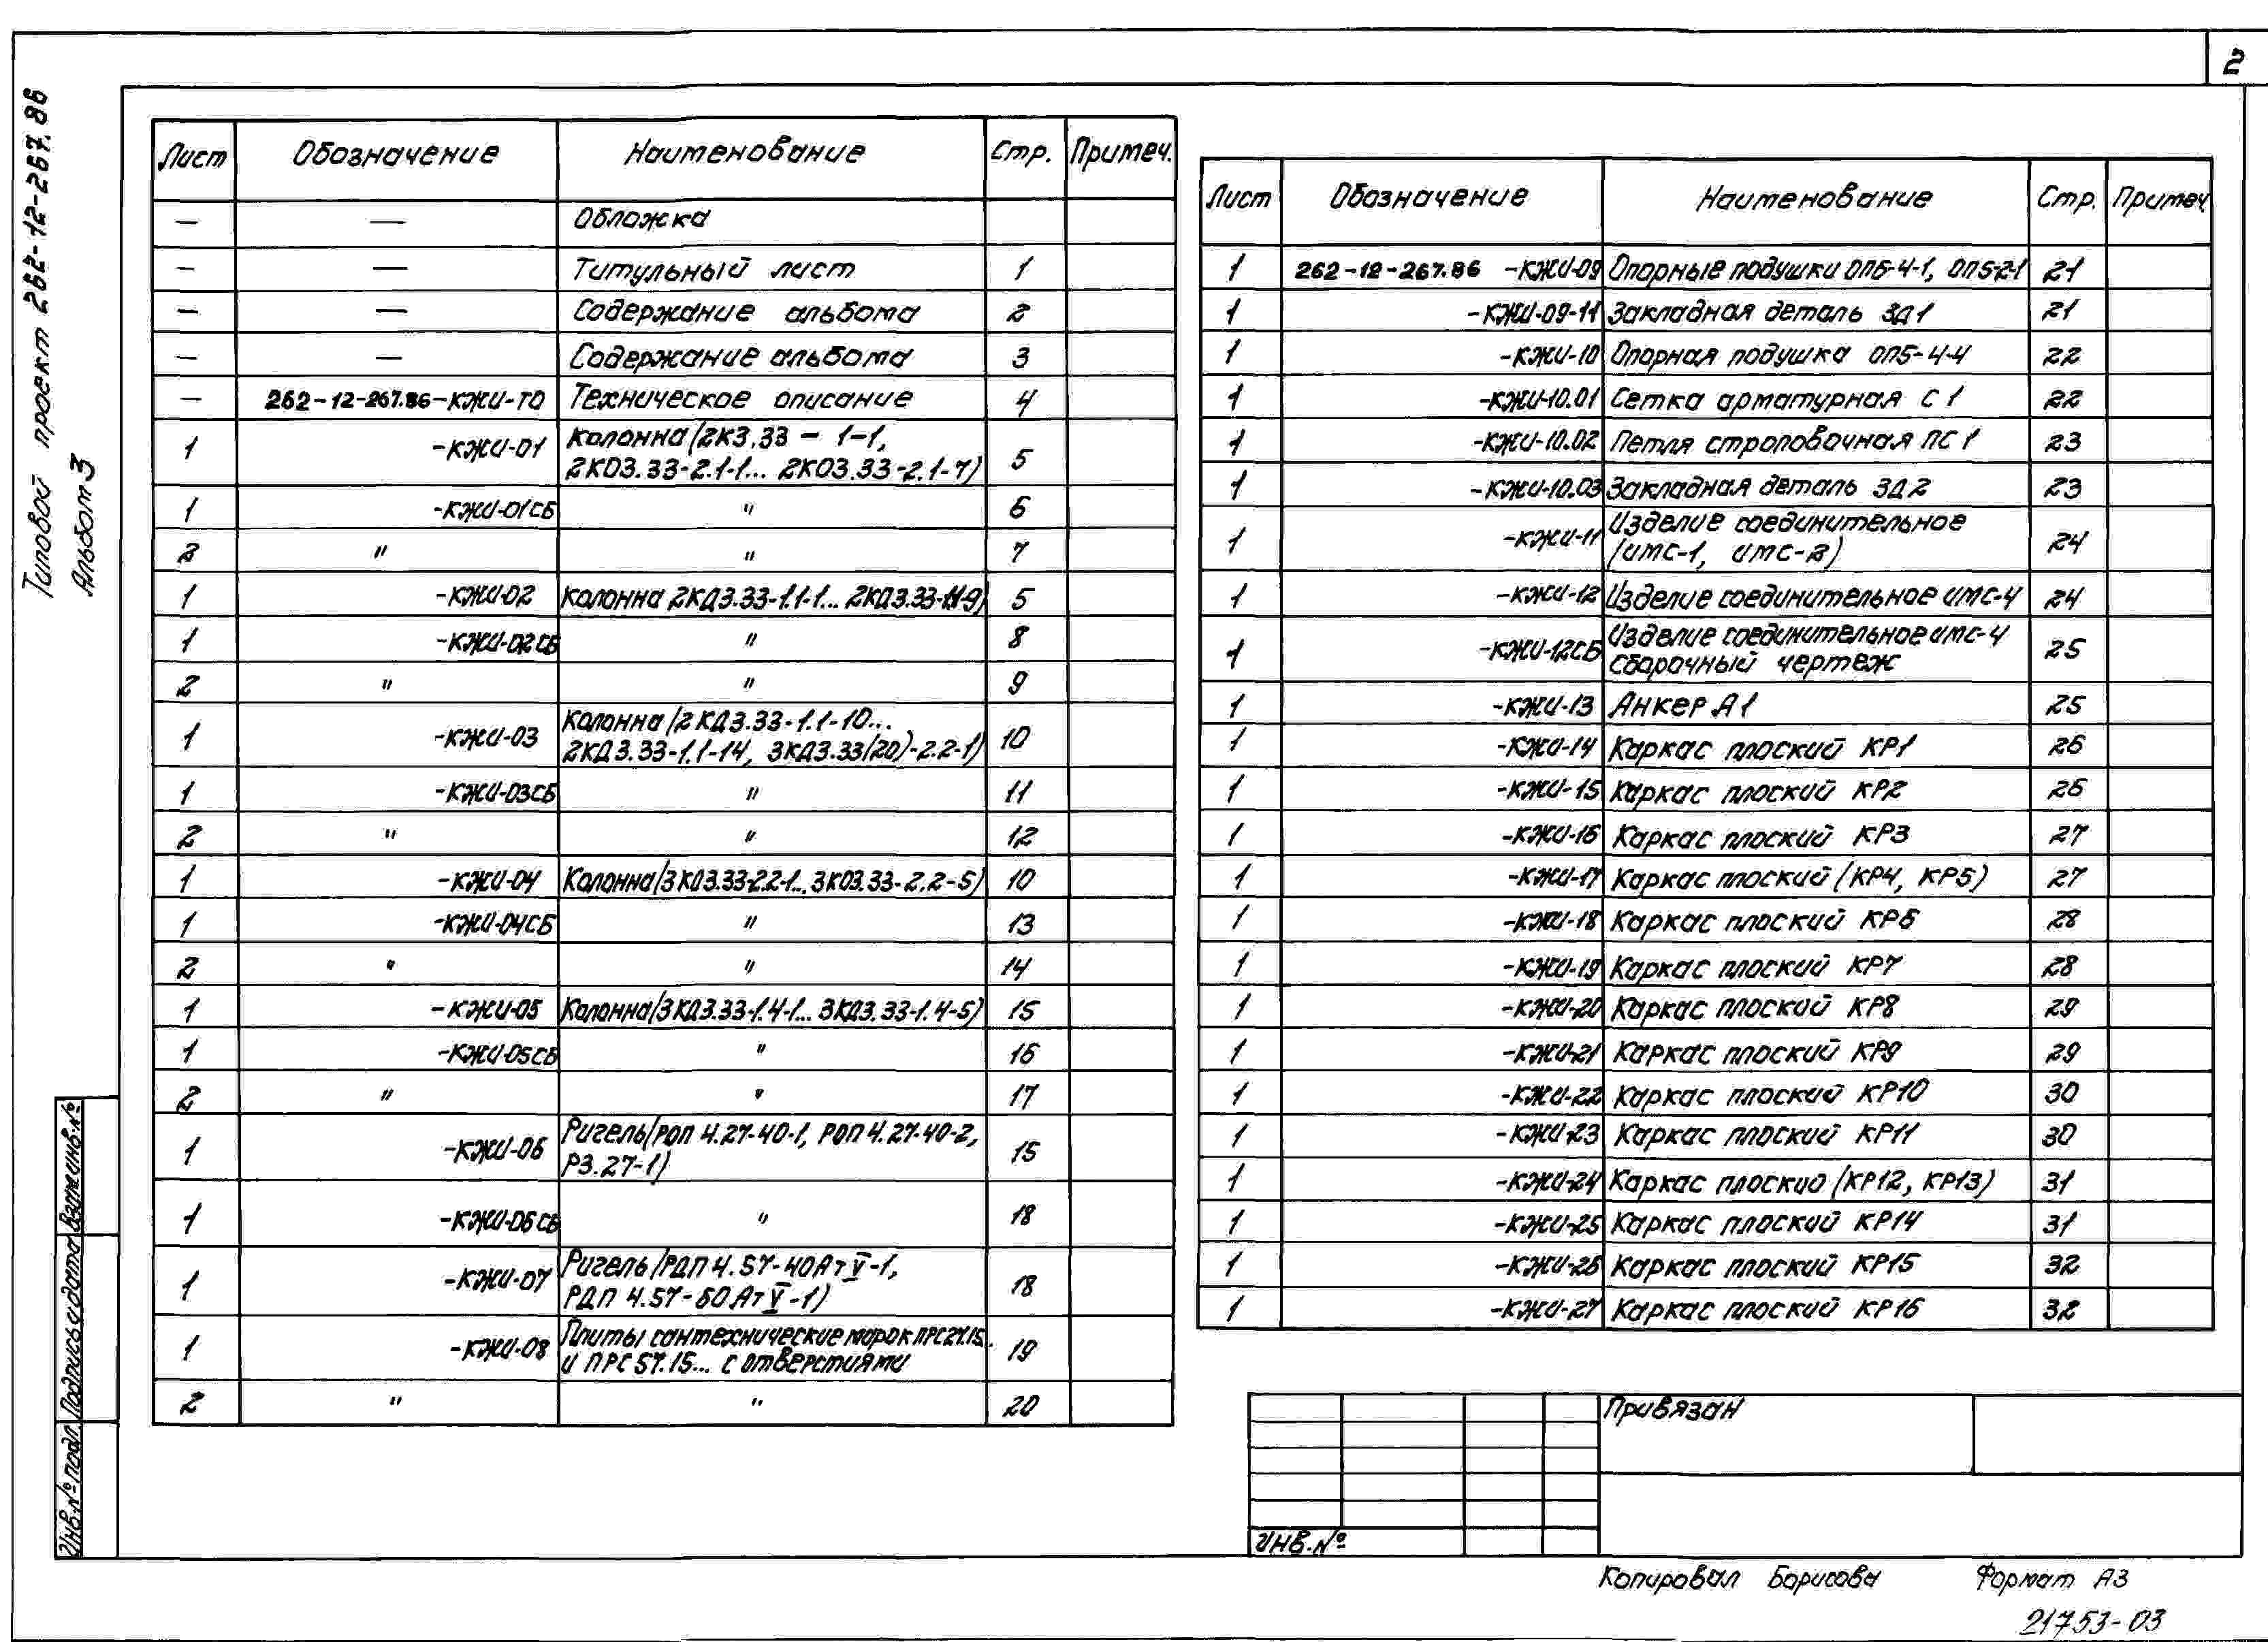 2
Типовой проект 262-12-267.86
Альбом 3
Лист Обозначение Наименование Стр. Примеч.
— — Обложка
— — Титульный лист 1
— — Содержание альбома 2
— — Содержание альбома 3
— 262-12-267.86-КЖИ-ТО Техническое описание 4
1 -КЖИ-01 Колонна (2К3.33 - 1-1,
2КО3.33-2.1-1... 2КО3.33-2.1-7) 5
1 -КЖИ-01СБ " 6
2 " " 7
1 -КЖИ-02 Колонна 2КД3.33-1.1-1... 2КД3.33-1.1-9) 5
1 -КЖИ-02СБ " 8
2 " " 9
1 -КЖИ-03 Колонна (2КД3.33-1.1-10...
2КД3.33-1.1-14, 3КД3.33(20)-2.2-1) 10
1 -КЖИ-03СБ " 11
2 " " 12
1 -КЖИ-04 Колонна (3КО3.33-2.2-1... 3КО3.33-2.2-5) 10
1 -КЖИ-04СБ " 13
2 " " 14
1 -КЖИ-05 Колонна (3КД3.33-1.4-1... 3КД3.33-1.4-5) 15
1 -КЖИ-05СБ " 16
2 " " 17
1 -КЖИ-06 Ригель (РОП 4.27-40-1, РОП 4.27-40-2,
Р3.27-1) 15
1 -КЖИ-06СБ " 18
1 -КЖИ-07 Ригель (РДП 4.57-40АтV-1,
РДП 4.57-60АтV-1) 18
1 -КЖИ-08 Плиты сантехнические марок ПРС27.15..
и ПРС57.15... с отверстиями 19
2 " " 20
Лист Обозначение Наименование Стр. Примеч.
1 262-12-267.86 -КЖИ-09 Опорные подушки ОП6-4-1, ОП5-2-1 21
1 -КЖИ-09-11 Закладная деталь ЗД1 21
1 -КЖИ-10 Опорная подушка ОП5-4-4 22
1 -КЖИ-10.01 Сетка арматурная С1 22
1 -КЖИ-10.02 Петля строповочная ПС1 23
1 -КЖИ-10.03 Закладная деталь ЗД2 23
1 -КЖИ-11 Изделие соединительное
(имс-1, имс-2) 24
1 -КЖИ-12 Изделие соединительное имс-4 24
1 -КЖИ-12СБ Изделие соединительное имс-4
сборочный чертеж 25
1 -КЖИ-13 Анкер А1 25
1 -КЖИ-14 Каркас плоский КР1 26
1 -КЖИ-15 Каркас плоский КР2 26
1 -КЖИ-16 Каркас плоский КР3 27
1 -КЖИ-17 Каркас плоский (КР4, КР5) 27
1 -КЖИ-18 Каркас плоский КР6 28
1 -КЖИ-19 Каркас плоский КР7 28
1 -КЖИ-20 Каркас плоский КР8 29
1 -КЖИ-21 Каркас плоский КР9 29
1 -КЖИ-22 Каркас плоский КР10 30
1 -КЖИ-23 Каркас плоский КР11 30
1 -КЖИ-24 Каркас плоский (КР12, КР13) 31
1 -КЖИ-25 Каркас плоский КР14 31
1 -КЖИ-26 Каркас плоский КР15 32
1 -КЖИ-27 Каркас плоский КР16 32
Инв.№ подл. Подпись и дата Взам.инв.№
Привязан
Инв.№
Копировал Борисова Формат А3
21753-03